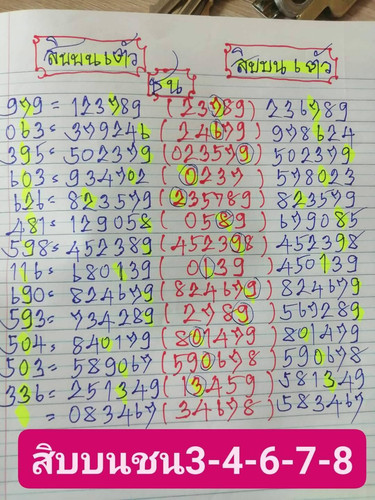 สิบบน ตัว สิบบน ตัว
ชน
979 = 123789 (23789) 236789
063 = 379246 (24679) 978624
395 = 502379 (023579) 502379
603 = 934702 (0237) 578023
626 = 823579 (235789) 823579
481 = 129058 (0589) 679085
598 = 452389 (452398) 452398
116 = 680139 (0139) 450139
690 = 824679 (824679) 824679
593 = 734289 (2789) 567289
504 = 840179 (801479) 801479
503 = 589067 (590678) 590678
336 = 251349 (13459) 581349
= 083467 (34678) 583467
สิบบนชน3-4-6-7-8